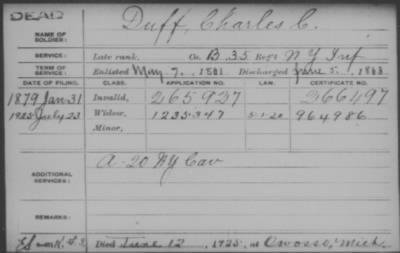 DEAD
NAME OF SOLDIER: Duff, Charles C.
SERVICE: Late rank, Co. B. 35 Reg't N Y Inf
TERM OF SERVICE: Enlisted May 7, 1861 Discharged June 5, 1863
DATE OF FILING. CLASS. APPLICATION NO. LAW. CERTIFICATE NO.
1879 Jan 31 Invalid, 265927 266497
1925 July 23 Widow, 1235347 5-1-20 964986
Minor,
ADDITIONAL SERVICES: A-20 NY Cav
REMARKS:
Died June 12, 1925, at Owosso, Mich.